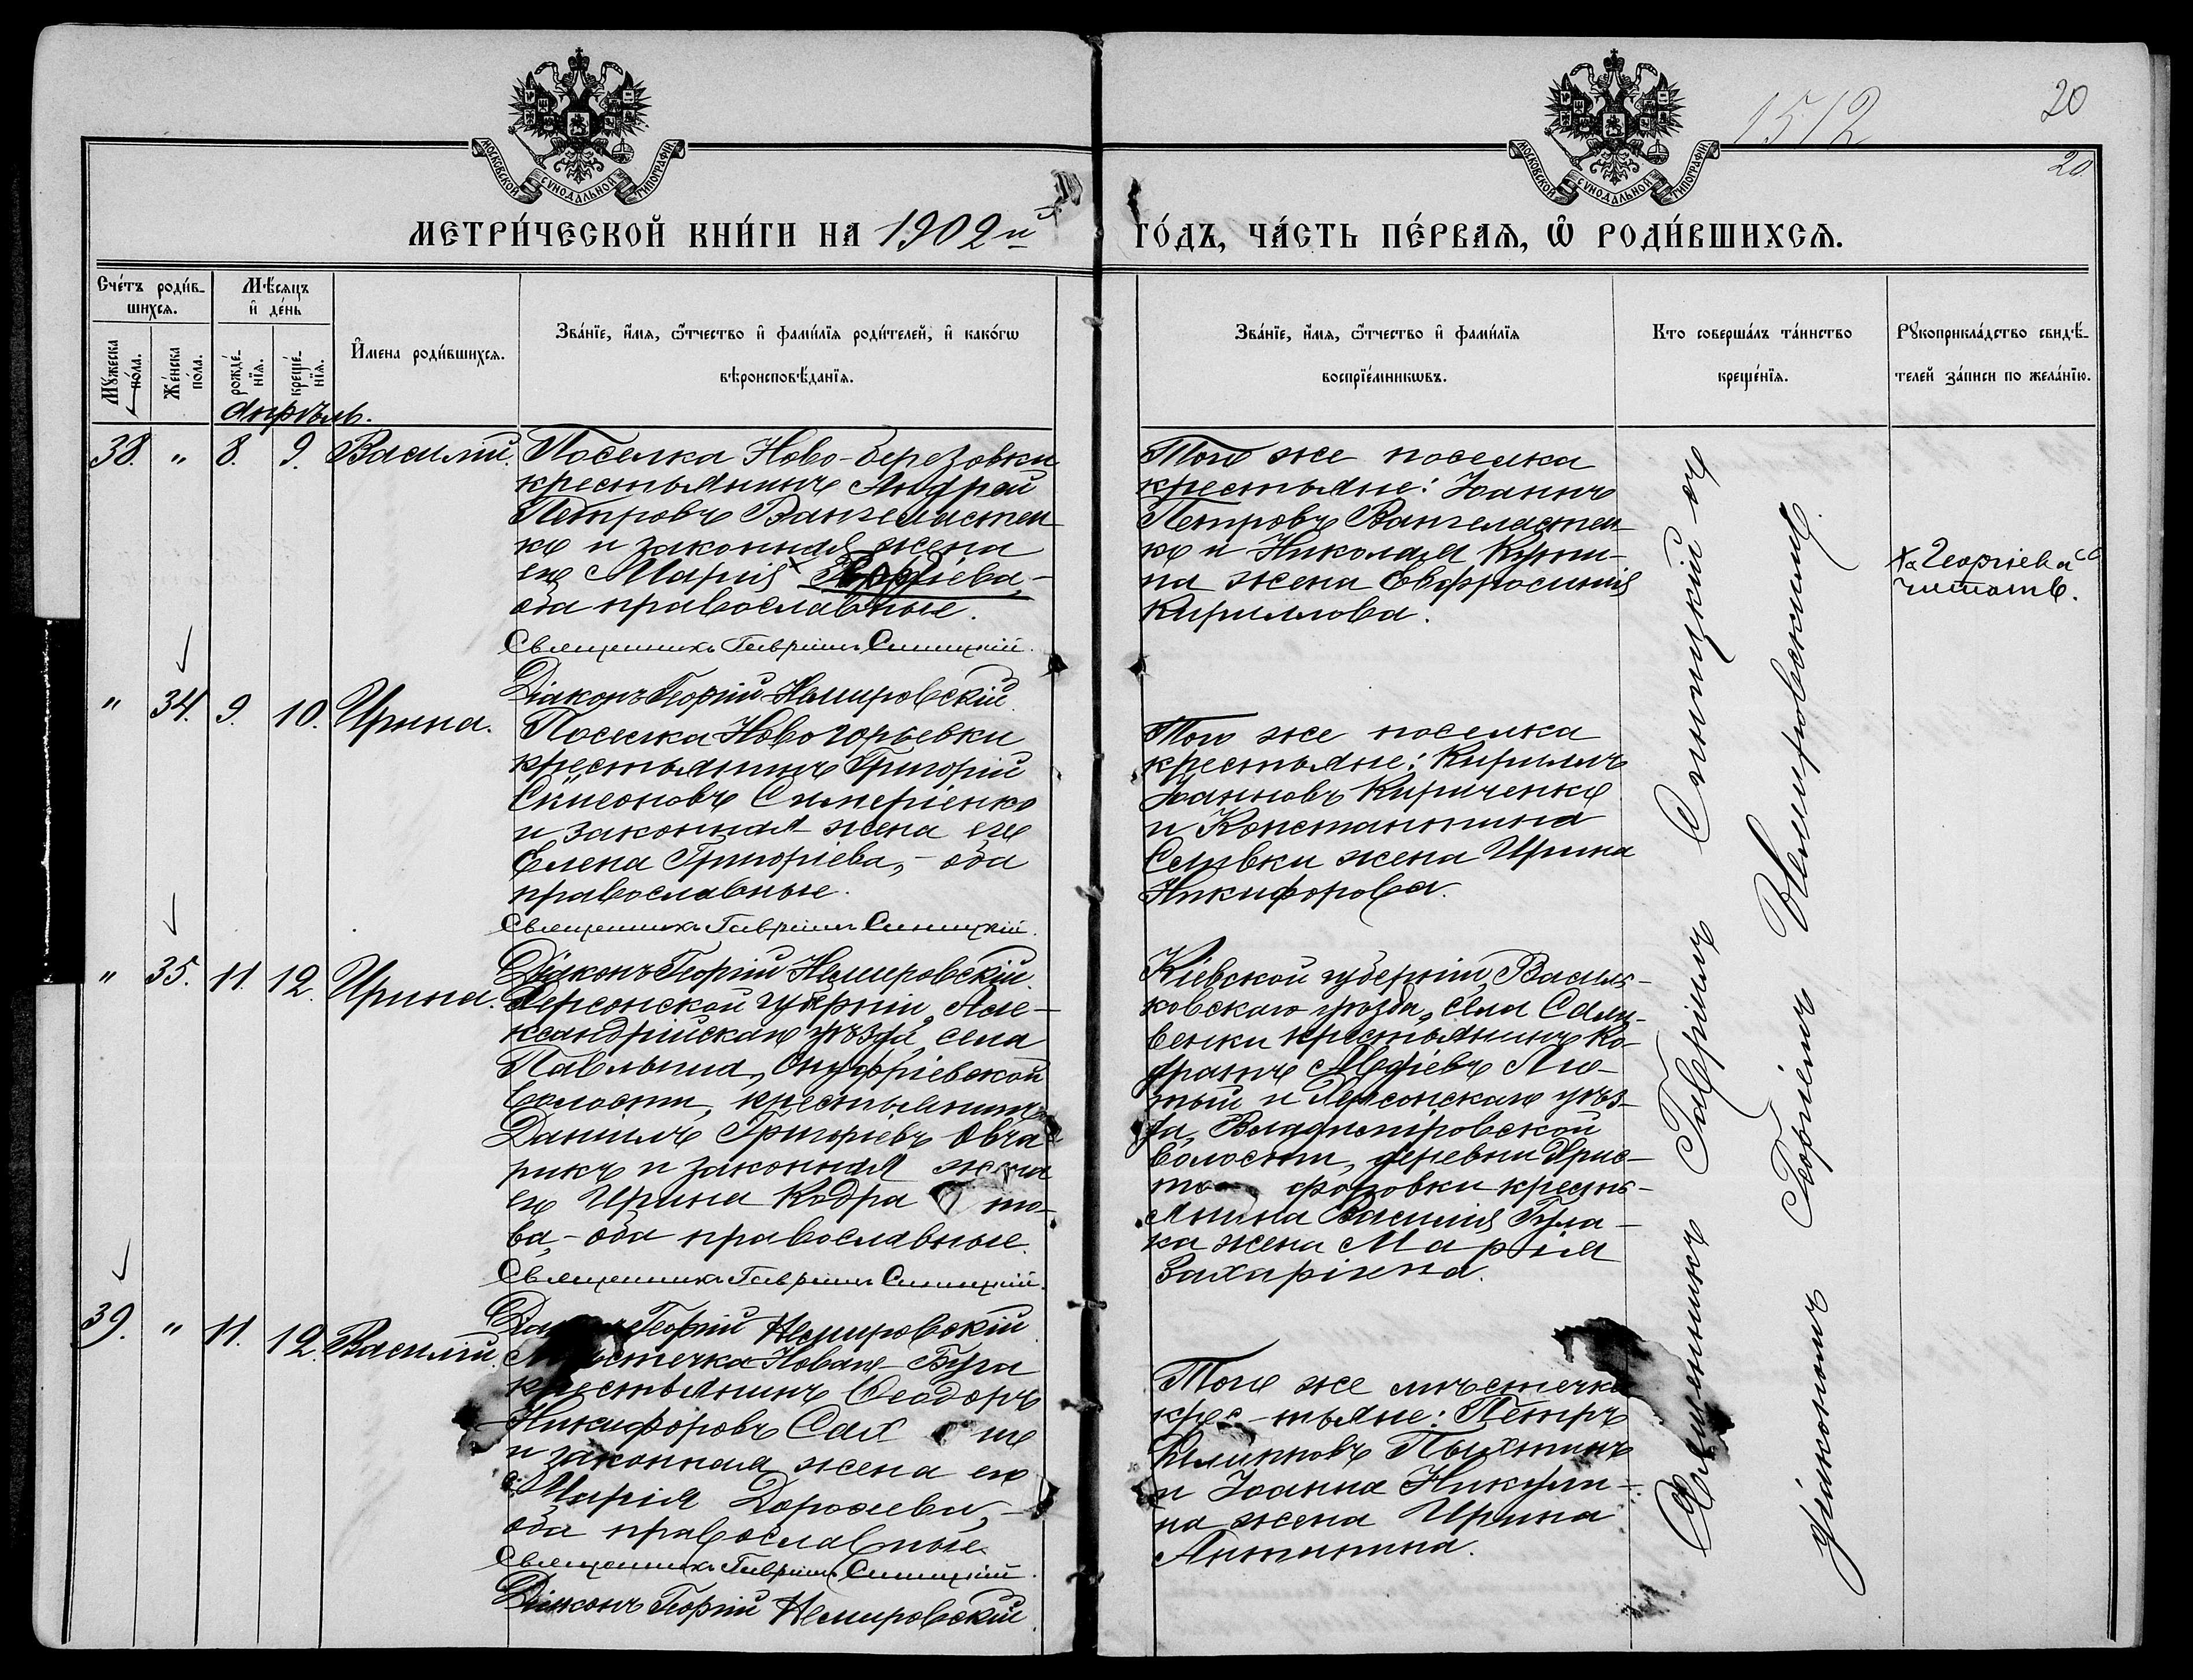 1512
20
20.
МОСКОВСКОЙ СѴНОДАЛЬНОЙ ТИПОГРАФІИ
МОСКОВСКОЙ СѴНОДАЛЬНОЙ ТИПОГРАФІИ
МЕТРИ́ЧЕСКОЙ КНИ́ГИ НА 1902й ГО́ДЪ, ЧА́СТЬ ПЕ́РВАЯ, Ѡ҆ РОДИ́ВШИХСЯ.
Сче́тъ роди́в-
шихся.
Мꙋ́жеска по́ла.
Же́нска по́ла.
Мѣ́сяцъ
и҆ де́нь
рожде́-
нїя.
креще́-
нїя.
И҆мена роди́вшихся.
Зва́нїе, и҆́мя, ѻ҆́тчество и҆ фами́лїя роди́телей, и҆ како́гѡ
вѣроисповѣ́данїя.
Зва́нїе, и҆́мя, ѻ҆́тчество и҆ фами́лїя
воспрїе́мникѡвъ.
Кто соверша́лъ та́инство
креще́нїя.
Рꙋкоприкла́дство свидѣ́-
телей за́писи по жела́нїю.
Апрѣль.
38. " 8. 9. Василій.
Поселка Ново-Березовки
крестьянинъ Андрей
Петровъ Вангеластен-
ко и законная жена
его Марія Георгіева,-
оба православные.
Священникъ Гавріилъ Синицкій.
Діаконъ Георгій Немировскій.
Того же поселка
крестьяне: Іоаннъ
Петровъ Вангеластен-
ко и Николая Купи-
на жена Евфросинія
Кириллова.
Георгіева
читать.
" 34. 9. 10. Ирина.
Поселка Новогорьевки
крестьянинъ Григорій
Симеоновъ Симеріенко
и законная жена его
Елена Григоріева,- оба
православные.
Священникъ Гавріилъ Синицкій.
Діаконъ Георгій Немировскій.
Того же поселка
крестьяне: Кириллъ
Іоанновъ Кириченко
и Константина
Селивки жена Ирина
Никифорова.
" 35. 11. 12. Ирина.
Херсонской губерніи, Але-
ксандрійскаго уѣзда, села
Павлыша, Онуфріевской
волости, крестьянинъ
Даниилъ Григорьевъ Овча-
рикъ и законная жена
его Ирина Кодра то-
ва,- оба православные.
Священникъ Гавріилъ Синицкій.
Діаконъ Георгій Немировскій
Кіевской губерніи, Василь-
ковскаго уѣзда, села Сали-
венки крестьянинъ Ко-
дратъ Лю-
тый и Херсонскаго уѣз-
да, Владиміровской
волости, деревни Хрис-
то форовки кресть-
янина Василія Була-
ка жена Марія
Захаріева.
39. " 11. 12. Василій.
Мѣстечка Новаго-Буга
крестьянинъ Ѳеодоръ
Никифоровъ Сах
и законная жена его
Марія Дорофеева,-
оба православные.
Священникъ Гавріилъ Синицкій.
Діаконъ Георгій Немировскій.
Того же мѣстечка
крес-тьяне: Петръ
Филипповъ Пыхтинъ
и Іоанна Никули-
на жена Ирина
Антипина.
Священникъ Гавріилъ Синицкій съ
діакономъ Георгіемъ Немировскимъ.